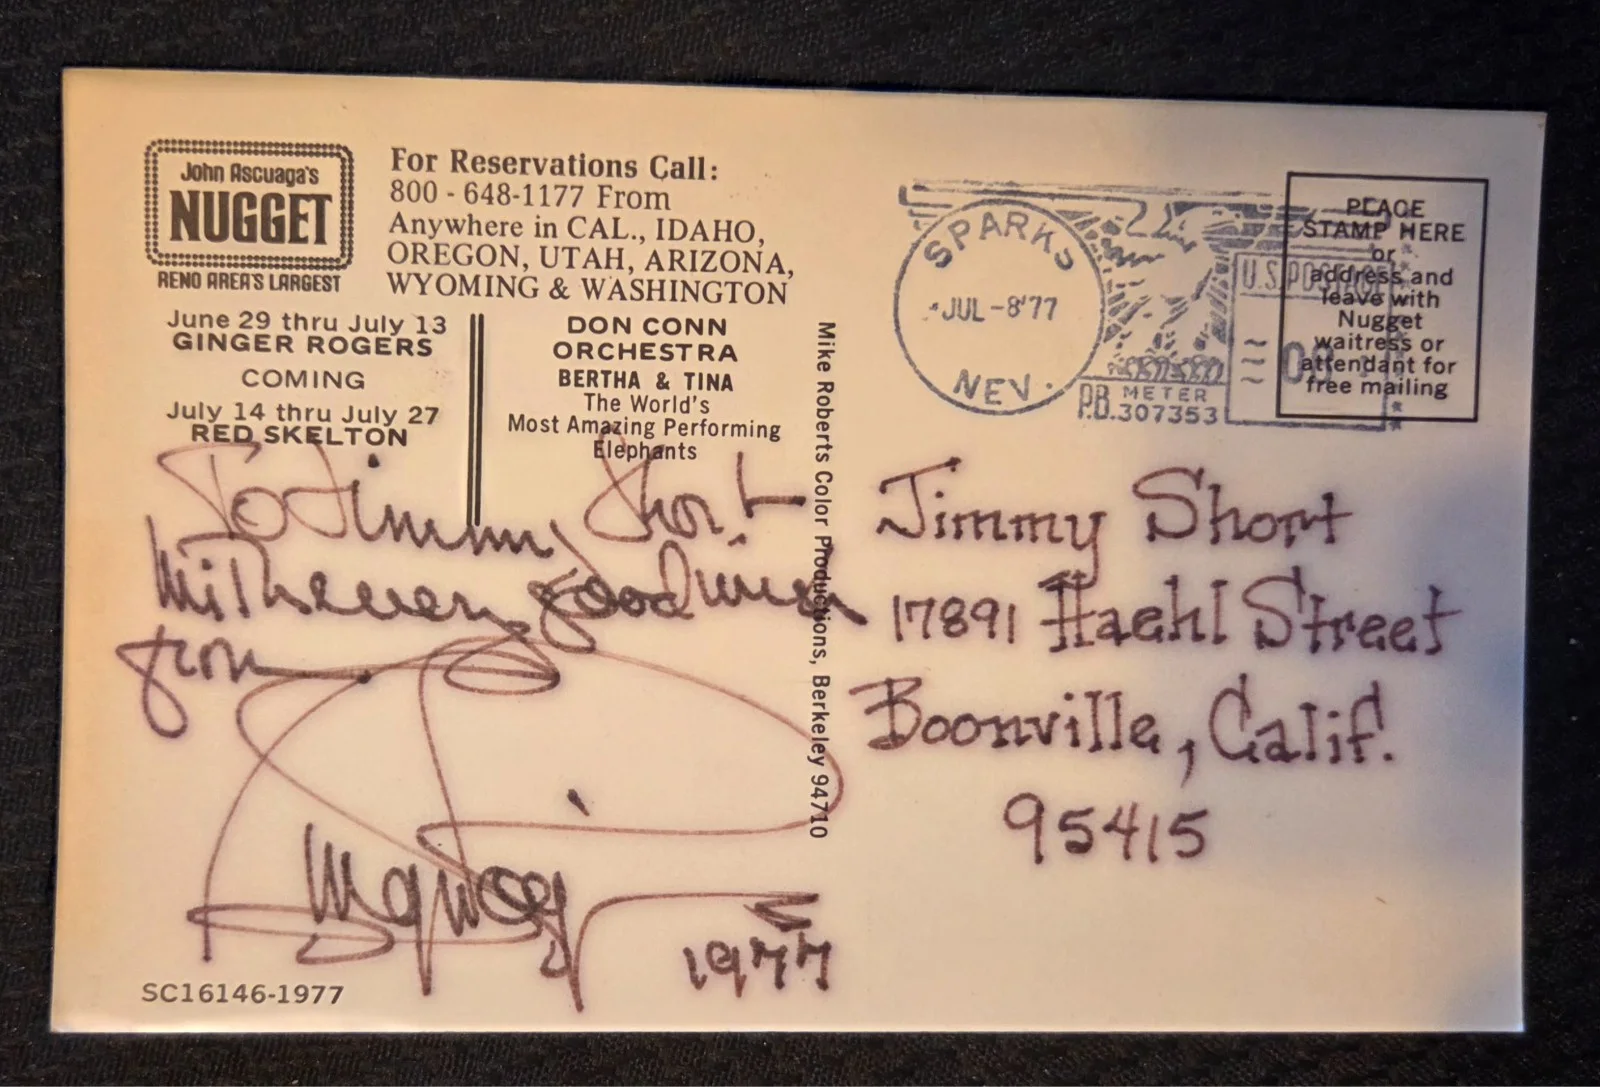 John Ascuaga's
NUGGET
RENO AREA'S LARGEST
For Reservations Call:
800 - 648-1177 From
Anywhere in CAL., IDAHO,
OREGON, UTAH, ARIZONA,
WYOMING & WASHINGTON
June 29 thru July 13
GINGER ROGERS
COMING
July 14 thru July 27
RED SKELTON
DON CONN
ORCHESTRA
BERTHA & TINA
The World's
Most Amazing Performing
Elephants
To Jimmy Short
with every good wish
from
1977
SC16146-1977
Mike Roberts Color Productions, Berkeley 94710
SPARKS
JUL-8'77
NEV.
P.B. METER
307353
U.S. POSTAGE
PLACE
STAMP HERE
or
address and
leave with
Nugget
waitress or
attendant for
free mailing
Jimmy Short
17891 Haehl Street
Boonville, Calif.
95415